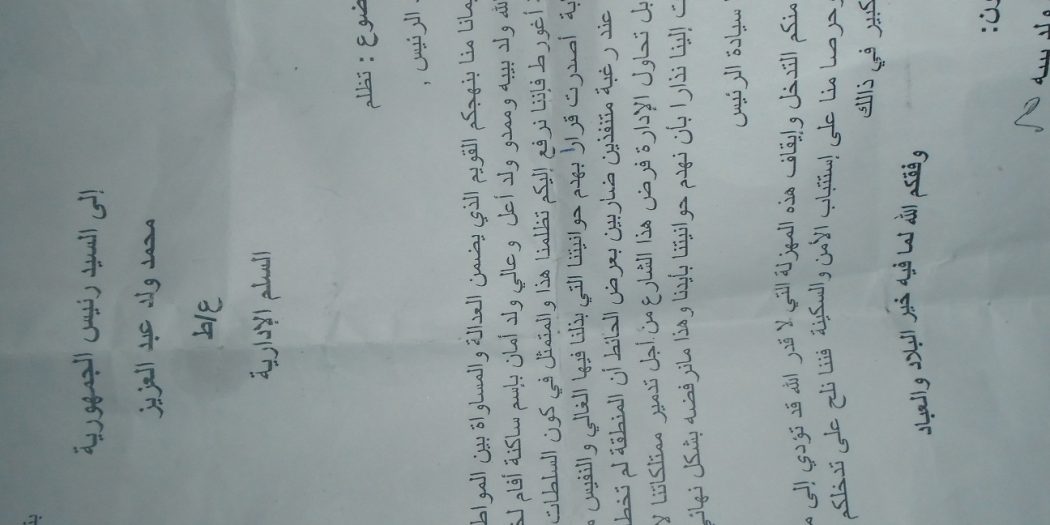 إلى السيد رئيس الجمهورية
محمد ولد عبد العزيز
ع/ط
السلم الإدارية
ضوع : تظلم
الرئيس ,
مانا منا بنهجكم القويم الذي يضمن العدالة والمساواة بين المواط
لله ولد بييه وممدو ولد أعل وعالي ولد أمان بإسم ساكنة أفام لخ
أغورط فإننا نرفع إليكم تظلمنا هذا والمتمثل في كون السلطات
ية أصدرت قرارا بهدم حوانيتنا التي بذلنا فيها الغالي والنفيس
عند رغبة متنفذين ضاربين بعرض الحائط أن المنطقة لم تخط
بل تحاول الإدارة فرض هذا الشارع من أجل تدمير ممتلكاتنا لا
ت إلينا نذارا بأن نهدم حوانيتنا بأيدنا وهذا مانرفضه بشكل نهائي
سيادة الرئيس
منكم التدخل وإيقاف هذه المهزلة التي لا قدر الله قد تؤدي إلى م
حرصا منا على إستتباب الأمن والسكينة فننا نلح على تدخلكم
كبير في ذالك
وفقكم الله لما فيه خير البلاد والعباد
ون:
ولد بييه